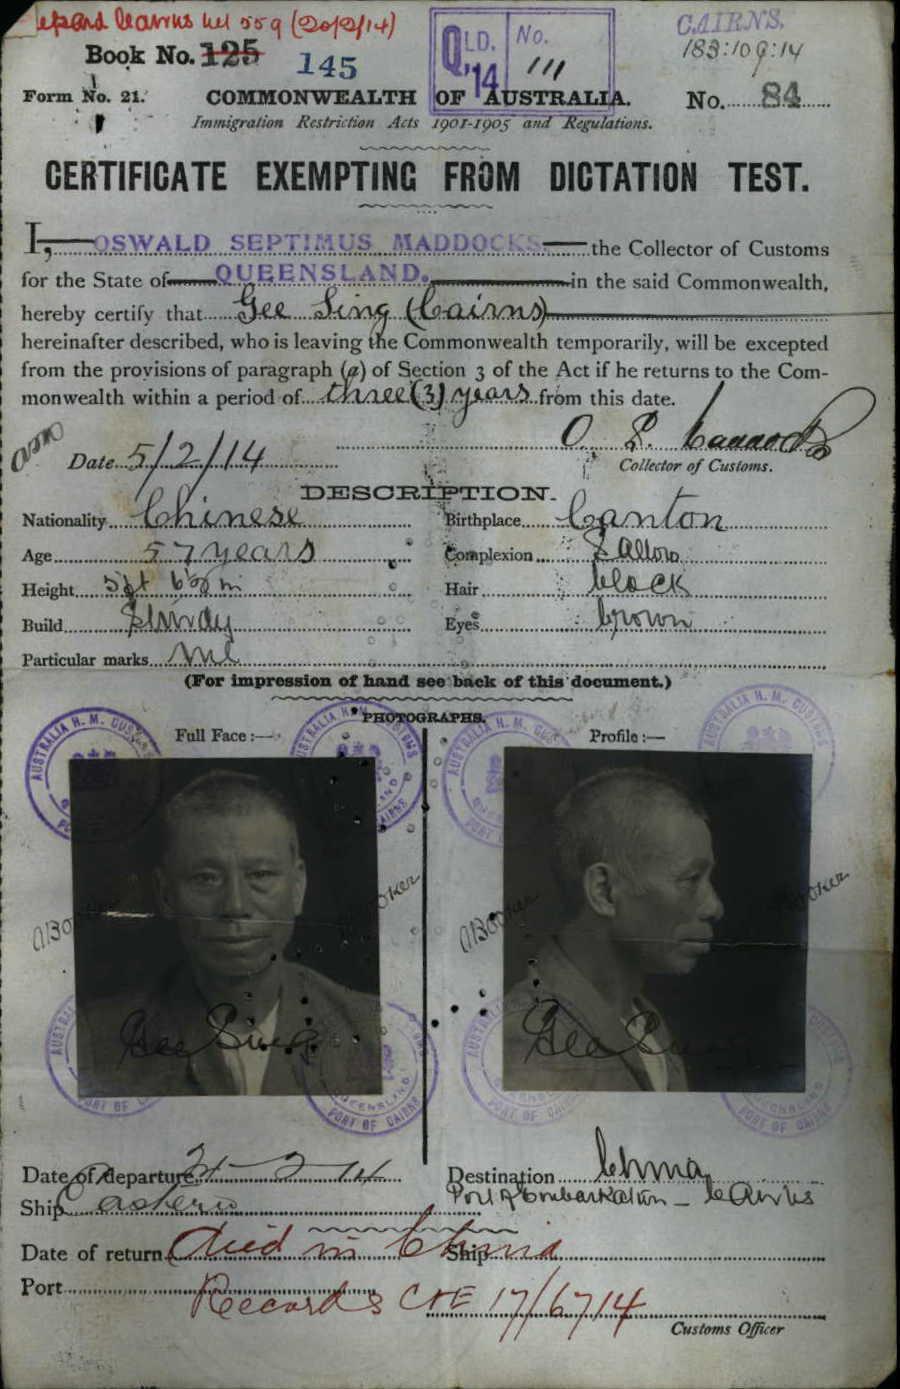 Cairns
(20/2/14)
Book No. 125 145
QLD. No.
'14 111
CAIRNS.
183:109:14
Form No. 21.
COMMONWEALTH OF AUSTRALIA.
No. 84
Immigration Restriction Acts 1901-1905 and Regulations.
CERTIFICATE EXEMPTING FROM DICTATION TEST.
I, OSWALD SEPTIMUS MADDOCKS the Collector of Customs
for the State of QUEENSLAND. in the said Commonwealth,
hereby certify that Gee Sing (Cairns)
hereinafter described, who is leaving the Commonwealth temporarily, will be excepted
from the provisions of paragraph (a) of Section 3 of the Act if he returns to the Com-
monwealth within a period of three (3) years from this date.
O. S. Maddocks
Date 5/2/14
Collector of Customs.
DESCRIPTION.
Nationality Chinese Birthplace Canton
Age 57 years Complexion Sallow
Height 5ft Hair black
Build Sturdy Eyes brown
Particular marks nil
(For impression of hand see back of this document.)
PHOTOGRAPHS.
Full Face:— Profile:—
AUSTRALIA H. M. CUSTOMS
QUEENSLAND
PORT OF CAIRNS
Gee Sing Gee Sing
Date of departure 2-14 Destination China
Ship Eastern Port of Embarkation - Cairns
Date of return Died in China Ship
Port
Records 17/6/14
Customs Officer